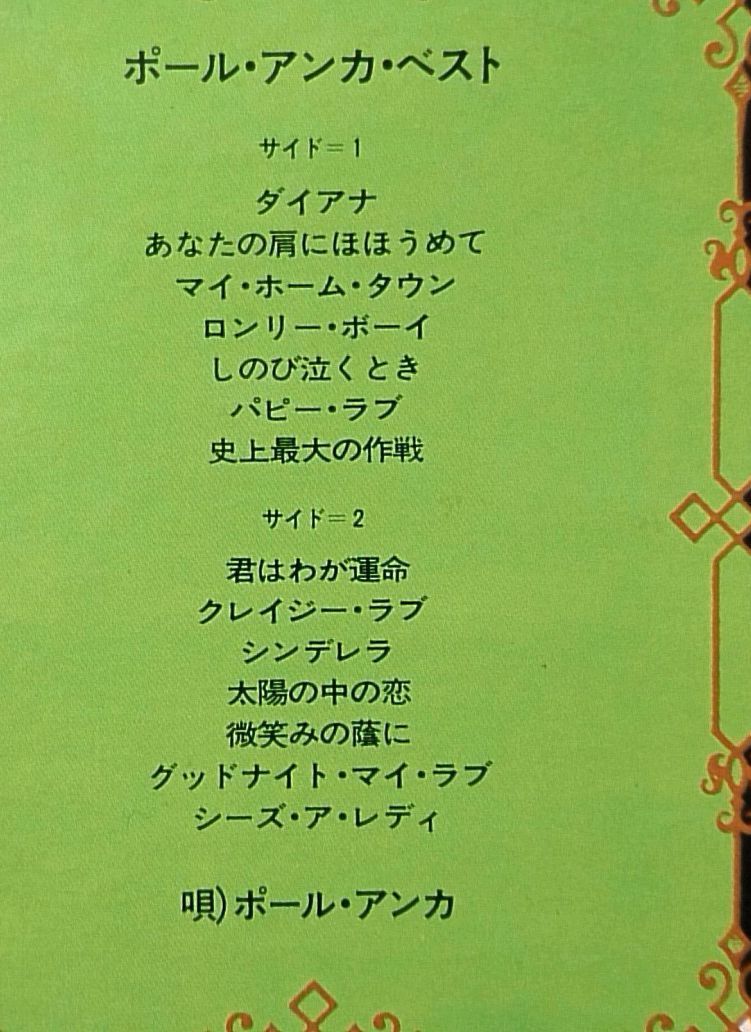 ポール・アンカ・ベスト
サイド=1
ダイアナ
あなたの肩にほほうめて
マイ・ホーム・タウン
ロンリー・ボーイ
しのび泣くとき
パピー・ラブ
史上最大の作戦
サイド=2
君はわが運命
クレイジー・ラブ
シンデレラ
太陽の中の恋
微笑みの蔭に
グッドナイト・マイ・ラブ
シーズ・ア・レディ
唄)ポール・アンカ